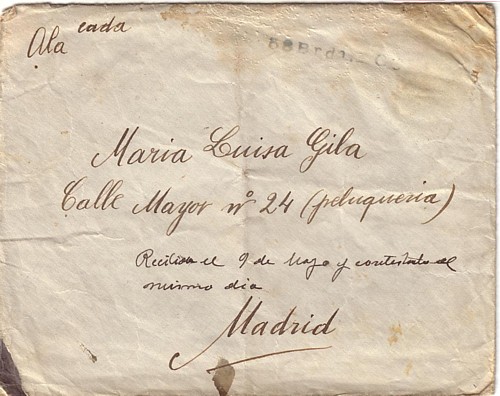 cada
Ala
Maria Luisa Gila
Calle Mayor nº 24 (peluqueria)
Recibida el 9 de Mayo y contestado el
mismo dia
Madrid